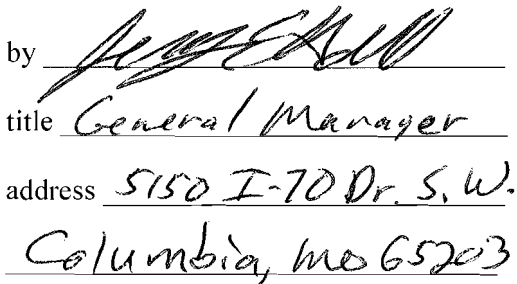 by
title General Manager
address 5150 I-70 Dr. S.W.
Columbia, Mo 65203